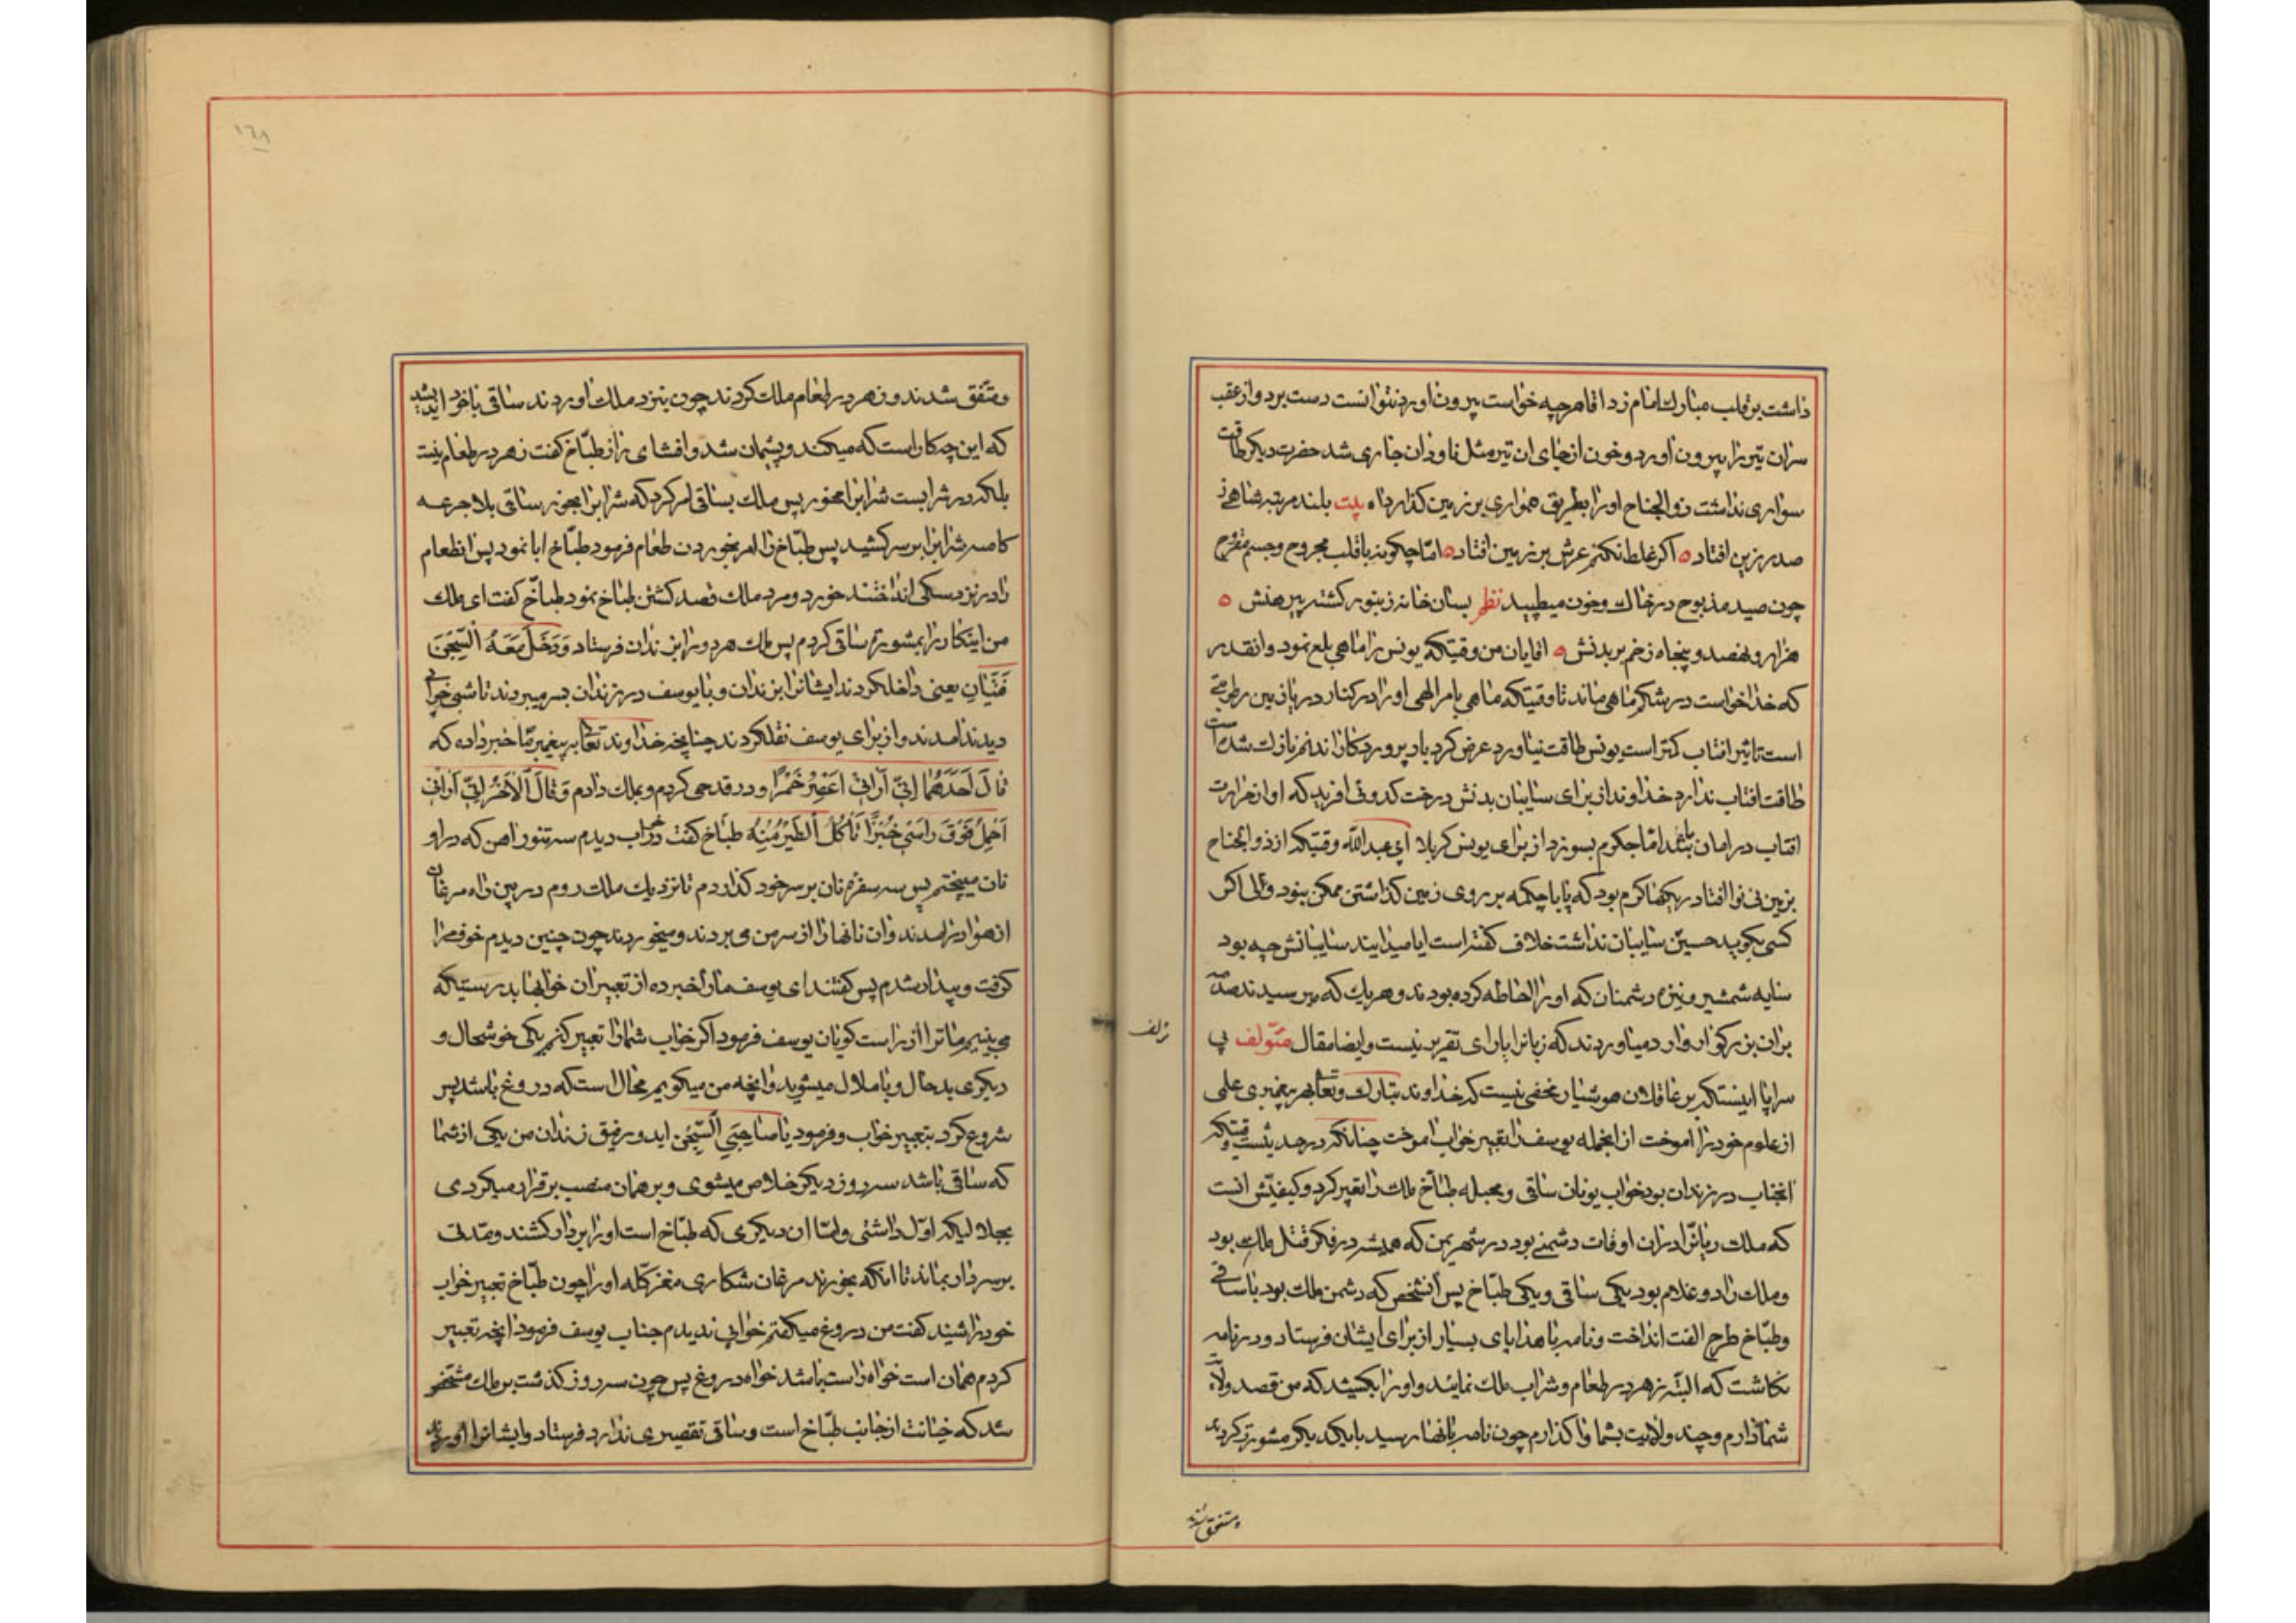 داشت بر قلب مبارک امام زد اما هرچه خواست بیرون اورد نتوانست دست برد و از عقب
سران تیر را بیرون اورد و خون از جای ان تیر مثل ناودان جاری شد حضرت دیگر طاقت
سواری نداشت ذوالجناح او را بطریق همواری بر زمین گذارد اه بیت بلند مرتبه شاهی ز
صدر زین افتاد اگر غلط نکنم عرش بر زمین افتاد اما چگونه با قلب مجروح و جسم مقروح
چون صید مذبوح در خاک و خون میطپید نظم بسان خانه زنبور گشته پیرهنش
هزار و نهصد و پنجاه زخم بر بدنش اقایان من وقتیکه یونس را ماهی بلع نمود و انقدر
که خدا خواست در شکم ماهی ماند تا وقتیکه ماهی بامر الهی او را در کنار دریا زمین رطوبتی
است تاثیر افتاب کمتر است یونس طاقت نیاورد عرض کرد بار پروردگارا بدنم نازک شده است
طاقت افتاب ندارد خداوند از برای سایبان بدنش درخت کدوئی افرید که او از حرارت
افتاب در امان باشد اما جگرم بسوزد از برای یونس کربلا ابی عبدالله وقتیکه از ذوالجناح
بزمین نی نوا افتاد ریکها گرم بود که پا با چکمه بر روی زمین گذاشتن ممکن نبود ولی اگر
کسی بگوید حسین سایبان نداشت خلاف گفته است ایا میدانید سایبانش چه بود
سایه شمشیر و نیزه دشمنان که او را احاطه کرده بودند و هر یک که میرسیدند صدمه
بران بزرگوار وارد میاوردند که زبانرا یارای تقریر نیست و ایضا مقال مؤلف پی
سراپا اینستکه بر عاقلان هوشیار مخفی نیست که خداوند تبارک و تعالی بهر پیغمبری علمی
از علوم خود را اموخت از انجمله یوسف را تعبیر خواب اموخت چنانکه در حدیثست وقتیکه
انجناب در زندان بود خواب یونان ساقی و مجبله طباخ ملک را تعبیر کرد و کیفیتش انست
که ملک ریانرا دران اوقات دشمنی بود در شهر یمن که همیشه در فکر قتل ملک بود
و ملک را دو غلام بود یکی ساقی و یکی طباخ پس انشخص که دشمن ملک بود با ساقی
و طباخ طرح الفت انداخت و نامه با هدایای بسیار از برای ایشان فرستاد و در نامه
نگاشت که البته زهر در طعام و شراب ملک نمایند و او را بکشید که من قصد ولاء
شما دارم و چند ولایت بشما واگذارم چون نامه بانها رسید با یکدیگر مشورت کردند
و متفق شدند
زلف
١٦٨
و متفق شدند و زهر در طعام ملک کردند چون بنزد ملک اوردند ساقی با خود اندیشید
که این چه کار است که میکنند و پشیمان شد و افشای راز طباخ گفت زهر در طعام نیست
بلکه در شرابست شرابرا مخور پس ملک بساقی امر کرد که شرابرا بخور ساقی بلا جرعه
کاسه شرابرا بر سر کشید پس طباخ را امر بخوردن طعام فرمود طباخ ابا نمود پس انطعام
را در نزد سگی انداختند خورد و مرد ملک قصد کشتن طباخ نمود طباخ گفت ای ملک
من اینکار را بمشورة ساقی کردم پس ملک هر دو را بزندان فرستاد وَدَخَلَ مَعَهُ السِّجْنَ
فَتَیَانِ یعنی داخلکردند ایشانرا بزندان و با یوسف در زندان بسر میبردند تا شبی خوابی
دیدند امدند و از برای یوسف نقلکردند چنانچه خداوند تعالی به پیغمبر ما خبر داده که
قالَ اَحَدُهُما اِنّی اَرانی اَعْصِرُ خَمْرًا و در قدحی کردم و بملک دادم وَ قالَ الْاخَرُ اِنّی اَرانی
اَحْمِلُ فَوْقَ رَاْسی خُبْزًا تَاْکُلُ الطَّیْرُ مِنْهُ طباخ گفت در خواب دیدم سر تنور اهن که در او
نان میپختم پس سه سفره نان بر سر خود گذاردم تا نزدیک ملک روم در بین راه مرغان
از هوا در امدند و ان نانها را از سر من می بردند و میخوردند چون چنین دیدم خوف مرا
گرفت و بیدار شدم پس گفتند ای یوسف ما را خبر ده از تعبیر ان خوابها بدرستیکه
می بینیم ما ترا از راست گویان یوسف فرمود اگر خواب شما را تعبیر کنم یکی خوشحال و
دیگری بدحال و با ملال میشوید و انچه من میگویم محال است که دروغ باشد پس
شروع کرد بتعبیر خواب و فرمود یا صاحِبَیِ السِّجْنِ ای دو رفیق زندان من یکی از شما
که ساقی باشد سه روز دیگر خلاص میشوی و بر همان منصب برقرار میگردی
بجلالیکه اول داشتی و اما ان دیگری که طباخ است او را بر دار کشند و مدتی
بر سر دار بماند تا انکه بخورند مرغان شکاری مغز کله او را چون طباخ تعبیر خواب
خود را شنید گفت من دروغ میگفتم خوابی ندیدم جناب یوسف فرمود انچه تعبیر
کردم همان است خواه راست باشد خواه دروغ پس چون سه روز گذشت بر ملک مشخص
شد که خیانت از جانب طباخ است و ساقی تقصیری ندارد فرستاد و ایشانرا اوردند